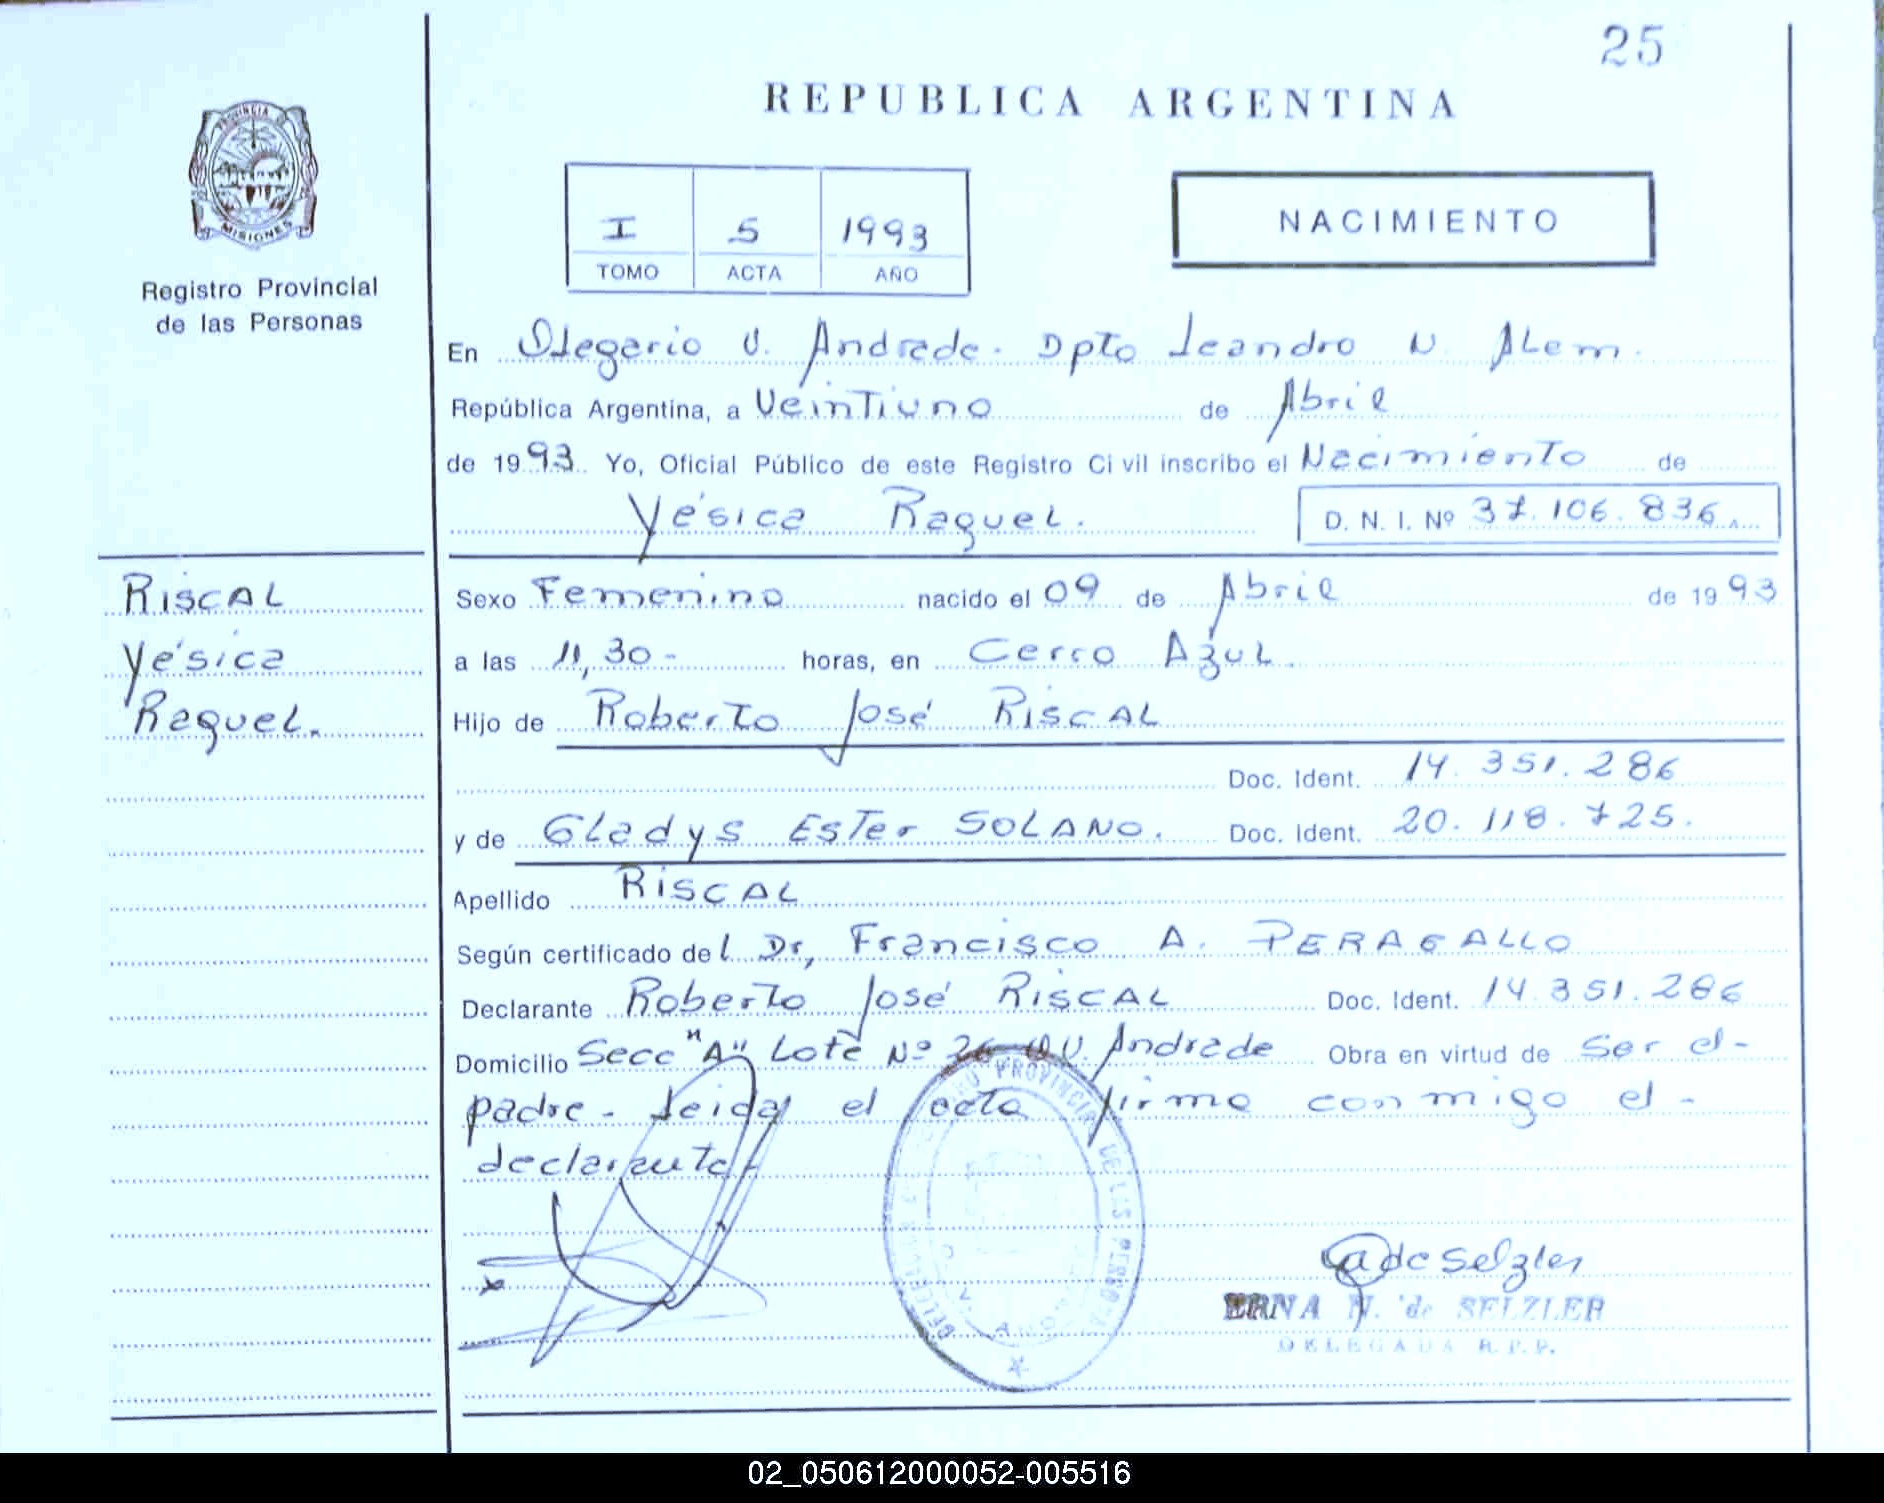 25
REPUBLICA ARGENTINA
PROVINCIA DE
MISIONES
Registro Provincial
de las Personas
I 5 1993
TOMO ACTA AÑO
NACIMIENTO
En Olegario V. Andrade. Dpto Leandro N. Alem.
República Argentina, a Veintiuno de Abril
de 1993 Yo, Oficial Público de este Registro Civil inscribo el Nacimiento de
Yésica Raquel.
D. N. I. Nº 37.106.836.
Riscal
Yésica
Raquel.
Sexo Femenino nacido el 09 de Abril de 1993
a las 11,30- horas, en Cerro Azul.
Hijo de Roberto José RiscAL
Doc. Ident. 14.351.286
y de Gladys Ester SOLANO. Doc. Ident. 20.118.725.
Apellido RiscAL
Según certificado del Dr, Francisco A. PERAGALLO
Declarante Roberto José RiscAL Doc. Ident. 14.351.286
Domicilio Secc "A" Lote Nº 26 O.V. Andrade Obra en virtud de Ser el-
padre- Leida el acta firma conmigo el-
declarante-
PROVINCIAL DE LAS PERSONAS
ade Selzler
ERNA N. de SELZLER
DELEGADA R.P.P.
02_050612000052-005516